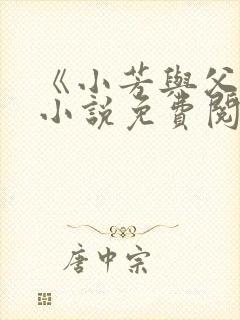 《小芳與父
小說免費閱
唐中宗